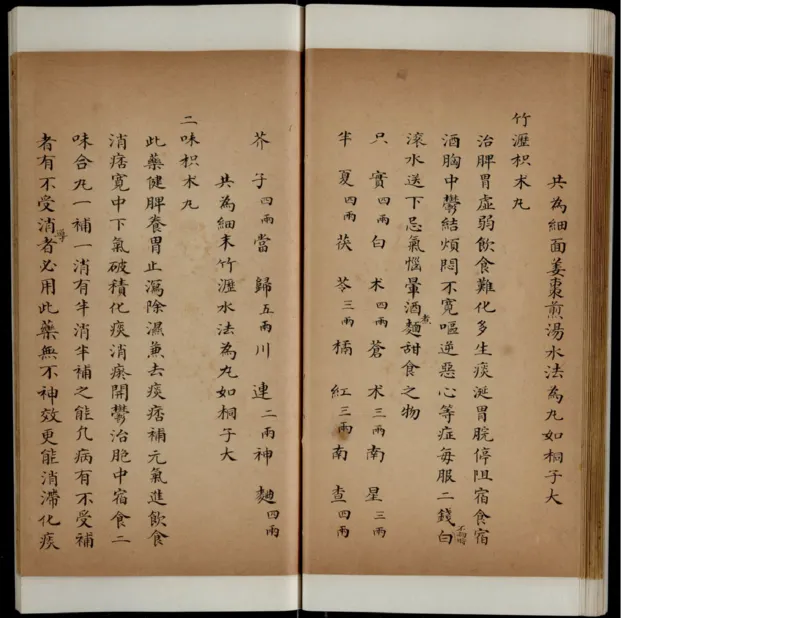 共為細面姜棗煎湯水法為丸如桐子大
竹瀝枳术丸
治脾胃虛弱飲食難化多生痰涎胃脘停阻宿食宿
酒胸中鬱結煩悶不寬嘔逆惡心等症每服二錢白
不拘時
滾水送下忌氣惱暈酒麵甜食之物
煮
只實四兩白术四兩蒼术三兩南星三兩
半夏四兩茯苓三兩橘紅三兩南查四兩
芥子四兩當歸五兩川連二兩神麯四兩
共為細末竹瀝水法為丸如桐子大
二味枳术丸
此藥健脾養胃止瀉除濕兼去痰痞補元氣進飲食
消痞寬中下氣破積化痰消瘼開鬱治胞中宿食二
味合丸一補一消有半消半補之能凡病有不受補
者有不受消者必用此藥無不神效更能消滯化痰